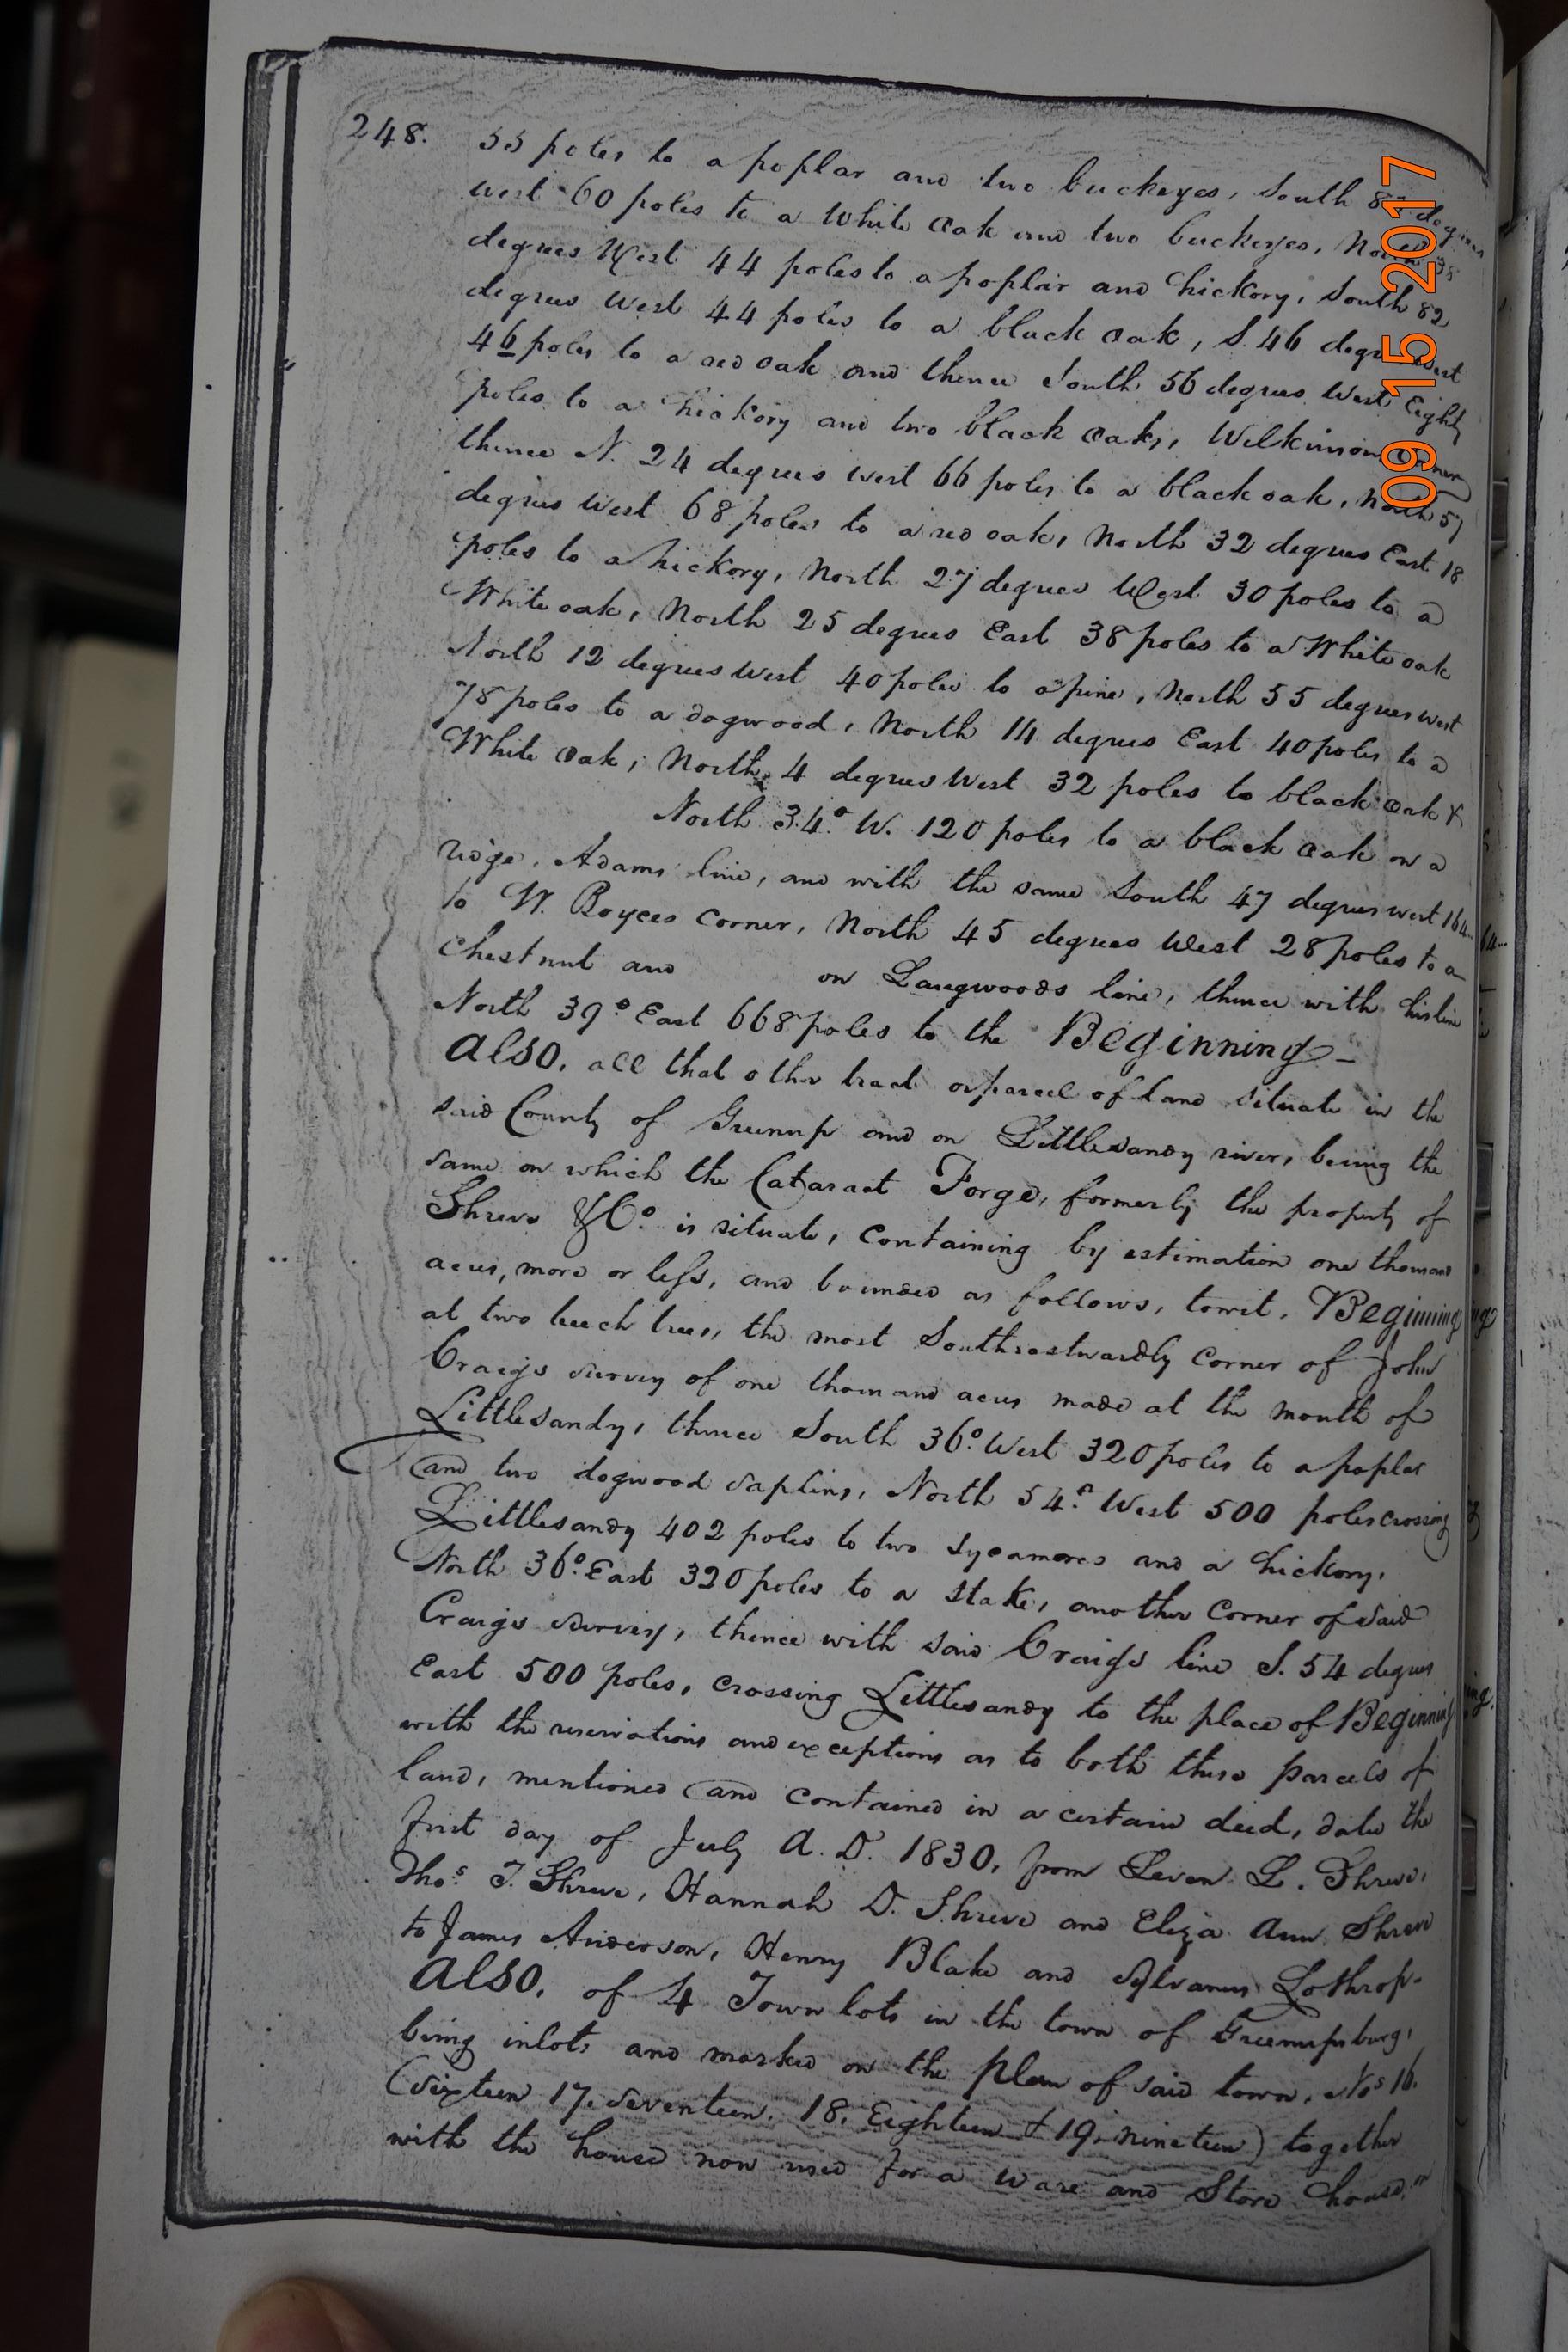 248.
55 poles to a poplar and two buckeyes, South degrees
west 60 poles to a White Oak and two buckeyes, North 35
degrees West 44 poles to a poplar and hickory, South 82
degrees West 44 poles to a black Oak, S. 46 degrees West
46 poles to a red oak and thence South 56 degrees West Eighty
poles to a hickory and two black Oaks, Wilkinson corner
thence N. 24 degrees west 66 poles to a black oak, North 57
degrees West 68 poles to a red oak, North 32 degrees East 18
poles to a hickory, North 27 degrees West 30 poles to a
White oak, North 25 degrees East 38 poles to a White oak
North 12 degrees West 40 poles to a pine, North 55 degrees west
78 poles to a dogwood, North 14 degrees East 40 poles to a
White Oak, North 4 degrees West 32 poles to black Oak &
North 34° W. 120 poles to a black Oak on a
ridge, Adams line, and with the same South 47 degrees west 164
to W. Royces corner, North 45 degrees West 28 poles to a
Chestnut and on Langwoods line, thence with his line
North 39° East 668 poles to the Beginning-
Also, all that other tract or parcel of land situate in the
said County of Greenup and on Littlesandy river, being the
same on which the Cataract Forge, formerly the property of
Shreve & Co. is situate, containing by estimation one thousand
acres, more or less, and bounded as follows, towit, Beginning
at two beech trees, the most Southeastwardly corner of John
Craigs survey of one thousand acres made at the mouth of
Littlesandy, thence South 36° West 320 poles to a poplar
and two dogwood saplins, North 54° West 500 poles crossing
Littlesandy 402 poles to two sycamores and a hickory,
North 36° East 320 poles to a stake, another corner of said
Craigs survey, thence with said Craigs line S. 54 degrees
East 500 poles, crossing Littlesandy to the place of Beginning
with the reservations and exceptions as to both these parcels of
land, mentioned and contained in a certain deed, date the
first day of July A. D. 1830, from Leven L. Shreve,
Thos. T. Shreve, Hannah D. Shreve and Eliza Ann Shreve
to James Anderson, Henry Blake and Sylvanus Lothrop-
Also, of 4 Town lots in the town of Greenupsburg,
being inlots and marked on the plan of said town, Nos 16.
(Sixteen 17. Seventeen, 18. Eighteen & 19. nineteen) together
with the house now used for a Ware and Store house, on
09 15 2017